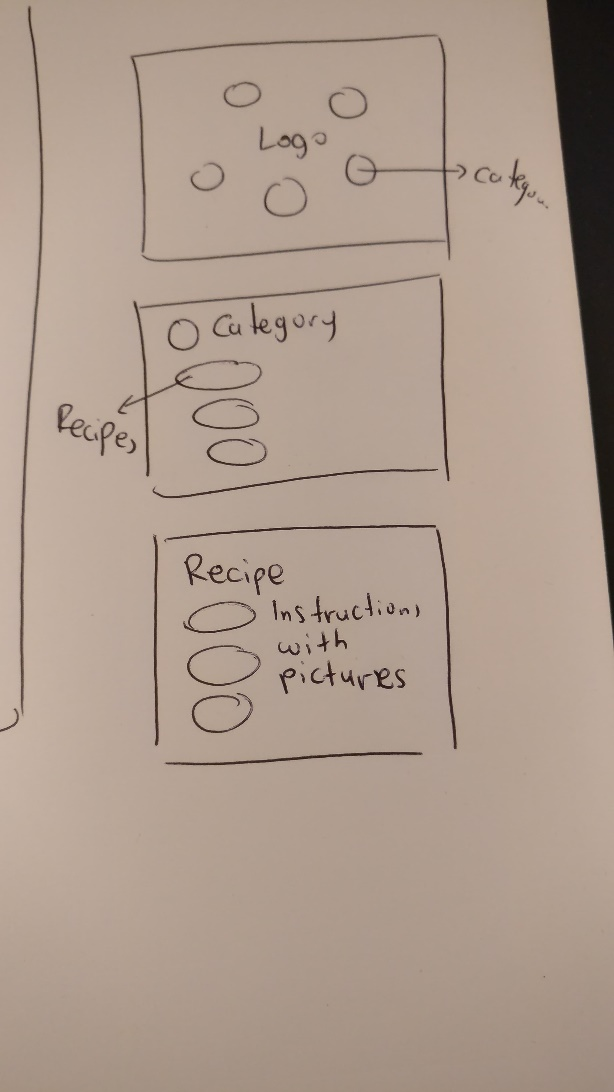 Logo
Category
Recipes
Recipe
Instructions
with
pictures